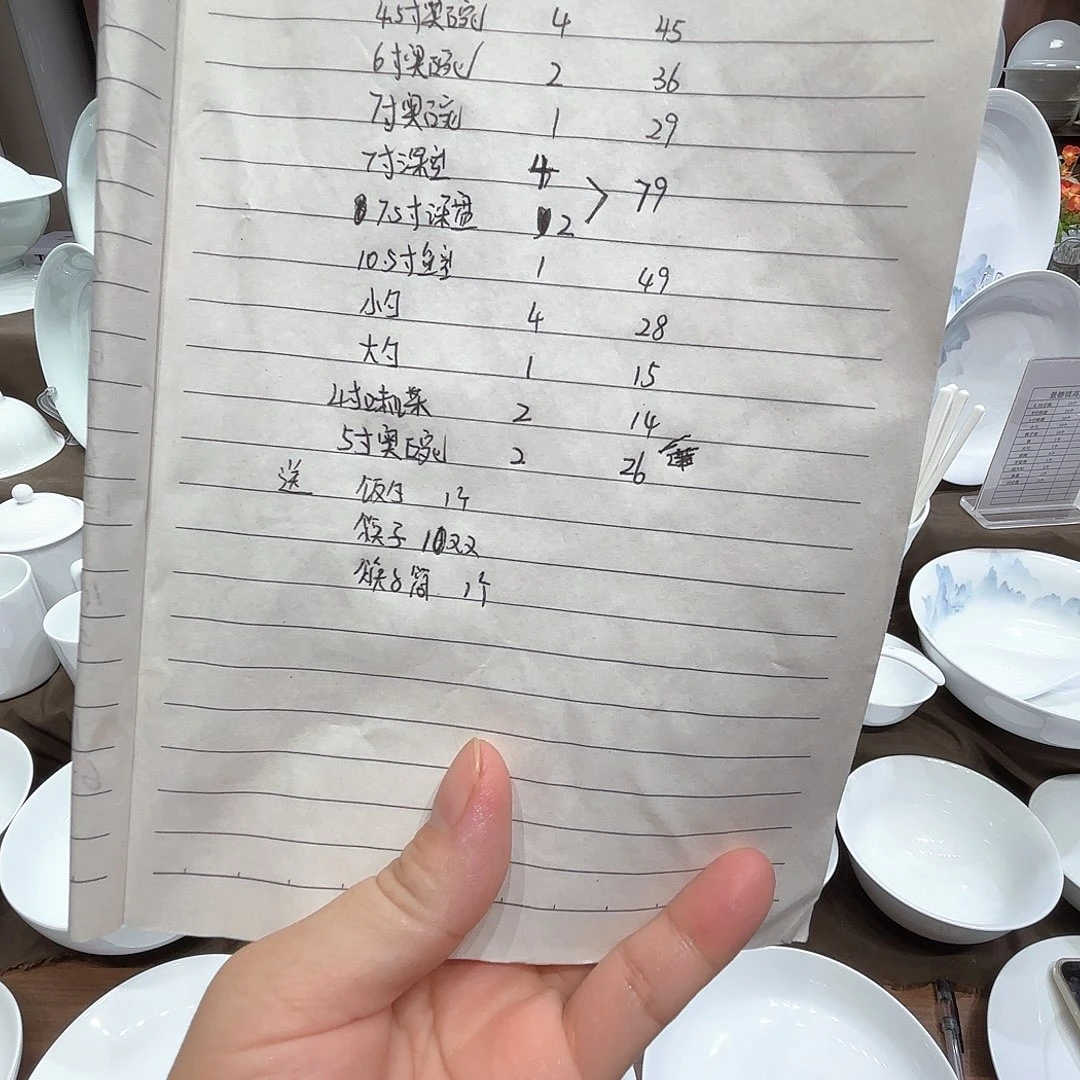 4.5寸奥碗 4 45
6寸奥碗 2 36
7寸奥碗 1 29
7寸深 4
7.5寸深盘 2 > 79
10.5寸 1 49
小勺 4 28
大勺 1 15
4寸味 2 14
5寸奥碗 2 26
送 饭勺 1个
筷子 10双
筷子筒 1个